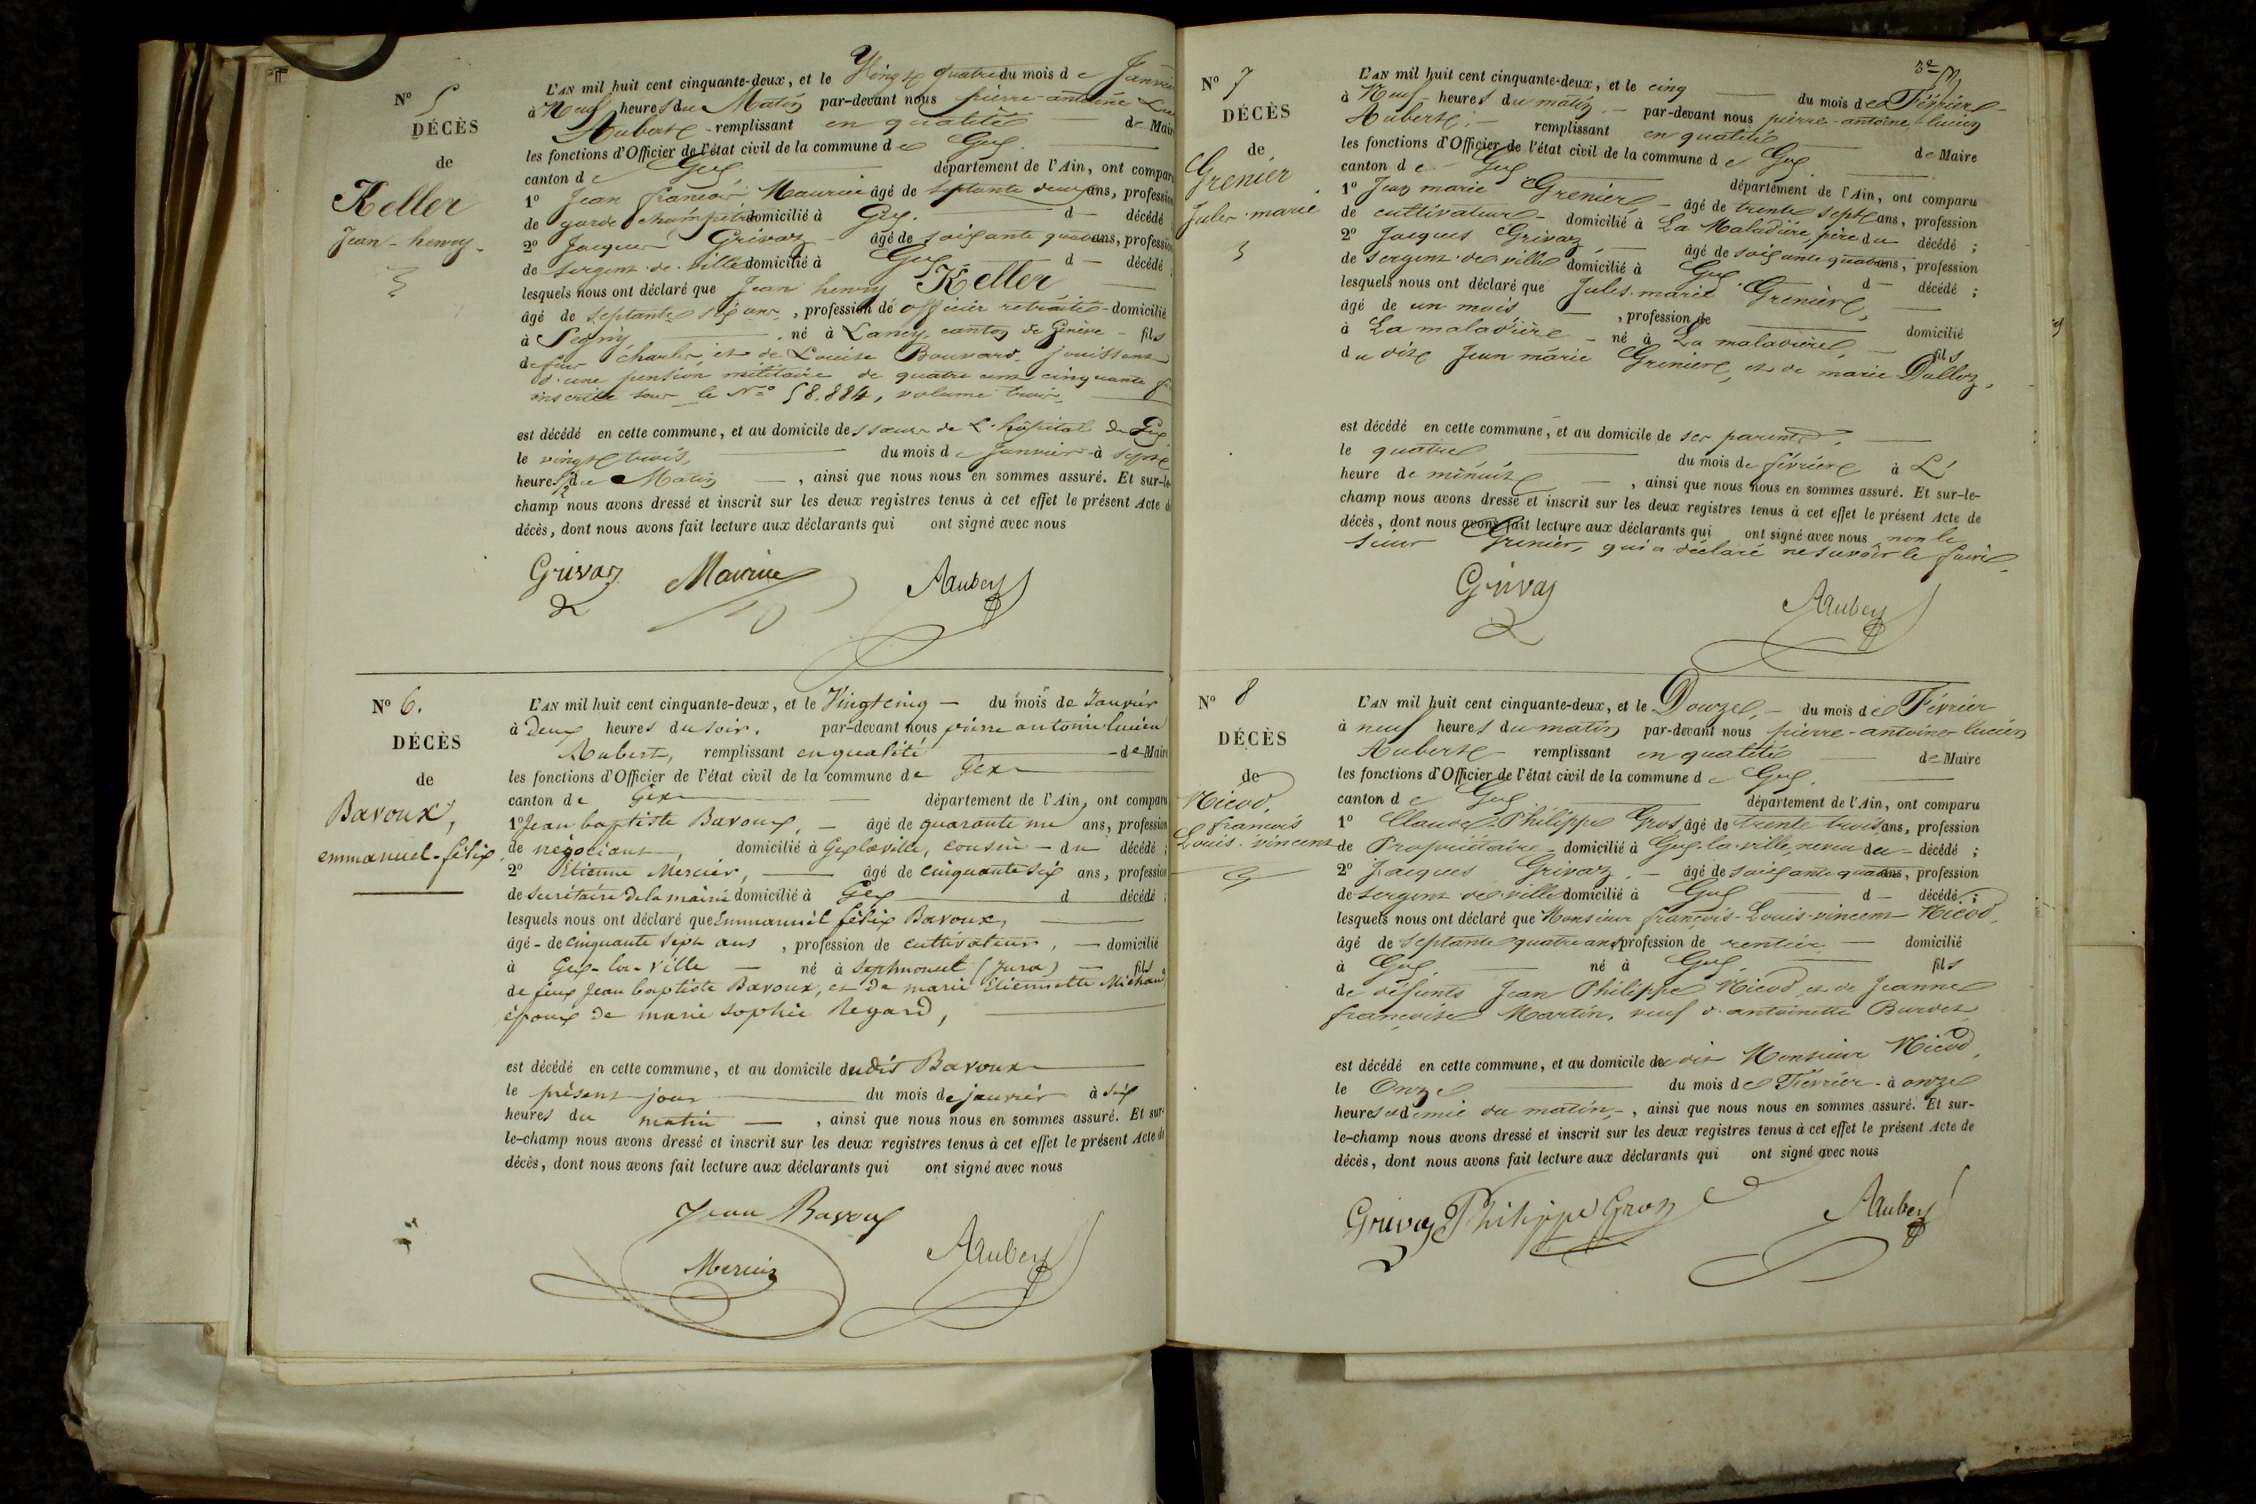 N° 5
DÉCÈS
de
Keller
Jean-henry
L'AN mil huit cent cinquante-deux, et le Vingt quatre du mois de Janvier
à Neuf heures du Matin par-devant nous pierre-antoine
Aubert remplissant en qualité de Maire
les fonctions d'Officier de l'état civil de la commune de Gex
canton de Gex département de l'Ain, ont comparu
1° Jean francois Maurice âgé de septante deux ans, profession
de garde champêtre domicilié à Gex. d décédé
2° Jacques Grivaz âgé de soixante quatre ans, profession
de sergent de ville domicilié à Gex d décédé
lesquels nous ont déclaré que Jean henry Keller
âgé de septante six ans, profession de officier retraité domicilié
à Segny né à Lancy, canton de Genève fils
de feu Charles et de Louise Bouvard, jouissant
d'une pension militaire de quatre cent cinquante f
inscrite sous le N° 58.884, volume trois,
est décédé en cette commune, et au domicile des sœurs de L'hôpital de Gex
le vingt trois, du mois de Janvier à sept
heures 1/2 du Matin, ainsi que nous nous en sommes assuré. Et sur-le-
champ nous avons dressé et inscrit sur les deux registres tenus à cet effet le présent Acte de
décès, dont nous avons fait lecture aux déclarants qui ont signé avec nous
Grivaz Maurice Aaubert
N° 6.
DÉCÈS
de
Bavoux,
emmanuel-félix
L'AN mil huit cent cinquante-deux, et le Vingt cinq du mois de Janvier
à Deux heures du soir. par-devant nous pierre antoine lucien
Aubert, remplissant en qualité de Maire
les fonctions d'Officier de l'état civil de la commune de Gex
canton de Gex département de l'Ain, ont comparu
1° Jean baptiste Bavoux, âgé de quarante un ans, profession
de négociant, domicilié à Gex la ville, cousin du décédé ;
2° Etienne Mercier, âgé de cinquante six ans, profession
de secrétaire de la mairie domicilié à Gex d décédé ;
lesquels nous ont déclaré que Emmanuel félix Bavoux,
âgé de cinquante sept ans, profession de cultivateur, domicilié
à Gex-la-Ville né à Septmoncel (Jura) fils
de feux Jean baptiste Bavoux, et de marie Etiennette Michaud,
époux de marie Sophie Regard,
est décédé en cette commune, et au domicile dudit Bavoux
le présent jour du mois de janvier à six
heures du matin, ainsi que nous nous en sommes assuré. Et sur-
le-champ nous avons dressé et inscrit sur les deux registres tenus à cet effet le présent Acte de
décès, dont nous avons fait lecture aux déclarants qui ont signé avec nous
Jean Bavoux
Mercier Aaubert
N° 7
DÉCÈS
de
Grenier
Jules-marie
L'AN mil huit cent cinquante-deux, et le cinq du mois de Février
à Neuf heures du matin par-devant nous pierre-antoine-lucien
Aubert remplissant en qualité de Maire
les fonctions d'Officier de l'état civil de la commune de Gex
canton de Gex département de l'Ain, ont comparu
1° Jean marie Grenier, âgé de trente sept ans, profession
de cultivateur domicilié à La Maladière, père du décédé ;
2° Jacques Grivaz, âgé de soixante quatre ans, profession
de sergent de ville domicilié à Gex d décédé ;
lesquels nous ont déclaré que Jules-marie Grenier,
âgé de un mois, profession de domicilié
à La maladière né à La maladière, fils
du dit Jean marie Grenier, et de marie Dalloz,
est décédé en cette commune, et au domicile de ses parents,
le quatre du mois de février à L'
heure de minuit, ainsi que nous nous en sommes assuré. Et sur-le-
champ nous avons dressé et inscrit sur les deux registres tenus à cet effet le présent Acte de
décès, dont nous avons fait lecture aux déclarants qui ont signé avec nous non le
sieur Grenier, qui a déclaré ne savoir le faire
Grivaz Aaubert
N° 8
DÉCÈS
de
Nicod,
francois
Louis-vincent
L'AN mil huit cent cinquante-deux, et le Douze, du mois de Février
à neuf heures du matin par-devant nous pierre-antoine lucien
Aubert remplissant en qualité de Maire
les fonctions d'Officier de l'état civil de la commune de Gex.
canton de Gex département de l'Ain, ont comparu
1° Claude-Philippe Gros, âgé de trente trois ans, profession
de Propriétaire domicilié à Gex-la-ville, neveu du décédé ;
2° Jacques Grivaz, âgé de soixante quatre ans, profession
de sergent de ville domicilié à Gex d décédé ;
lesquels nous ont déclaré que Monsieur françois-Louis-vincent Nicod,
âgé de septante quatre ans profession de rentier domicilié
à Gex né à Gex, fils
de défunts Jean Philippe Nicod, et de Jeanne
françoise Martin, veuf d'antoinette Burdet
est décédé en cette commune, et au domicile du dit Monsieur Nicod,
le Onze du mois de Février à onze
heures et demie du matin, ainsi que nous nous en sommes assuré. Et sur-
le-champ nous avons dressé et inscrit sur les deux registres tenus à cet effet le présent Acte de
décès, dont nous avons fait lecture aux déclarants qui ont signé avec nous
Grivaz Philippe Gros Aaubert